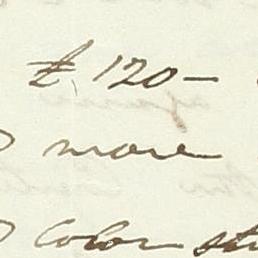 £ 120 —
more
color